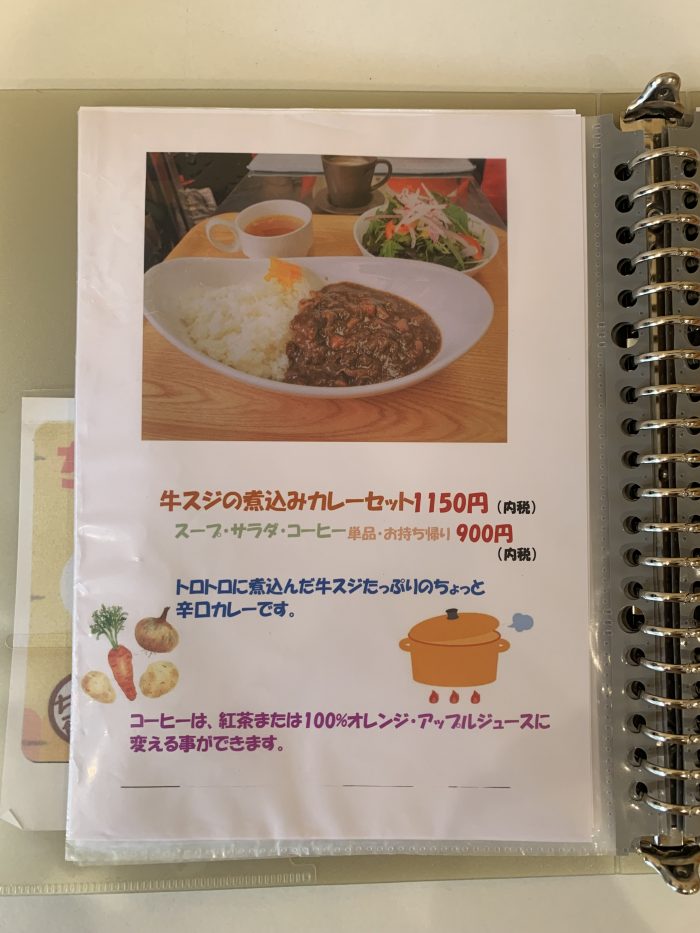 牛スジの煮込みカレーセット1150円（内税）
スープ・サラダ・コーヒー単品・お持ち帰り 900円
（内税）
トロトロに煮込んだ牛スジたっぷりのちょっと
辛口カレーです。
コーヒーは、紅茶または100%オレンジ・アップルジュースに
変える事ができます。